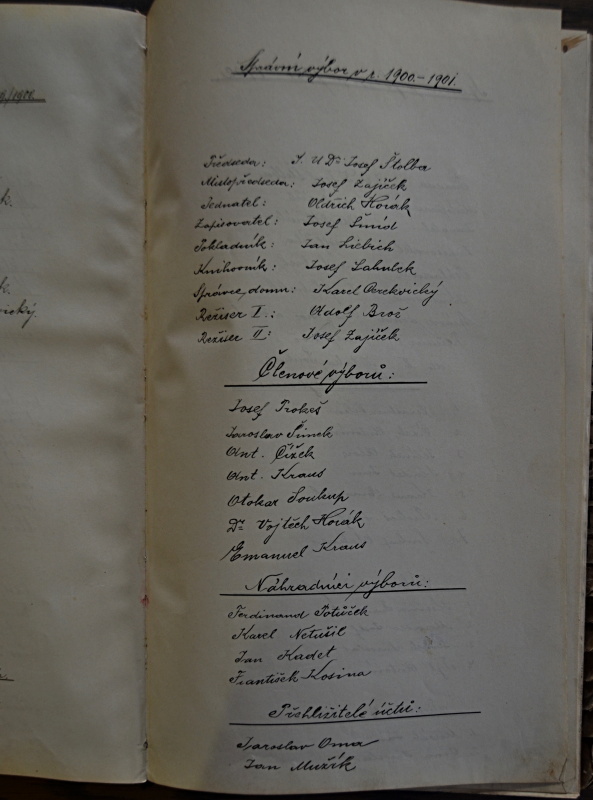 Správní výbor v r. 1900.-1901.
Předseda: J. U Dr. Josef Štolba
Místopředseda: Josef Zajíček
Jednatel: Oldřich Horák
Zapisovatel: Josef Šmíd
Pokladník: Jan Liebich
Knihovník: Josef Lahulek
Správce domu: Karel Perekvický
Režiser I.: Adolf Brož
Režiser II: Josef Zajíček
Členové výborů:
Josef Prokeš
Jaroslav Šimek
Ant. Čížek
Ant. Kraus
Otokar Soukup
Dr. Vojtěch Horák
Emanuel Kraus
Náhradníci výborů:
Ferdinand Potůček
Karel Netušil
Jan Kadet
František Kosina
Přehlížitelé účtů:
Jaroslav Oma
Jan Mužík